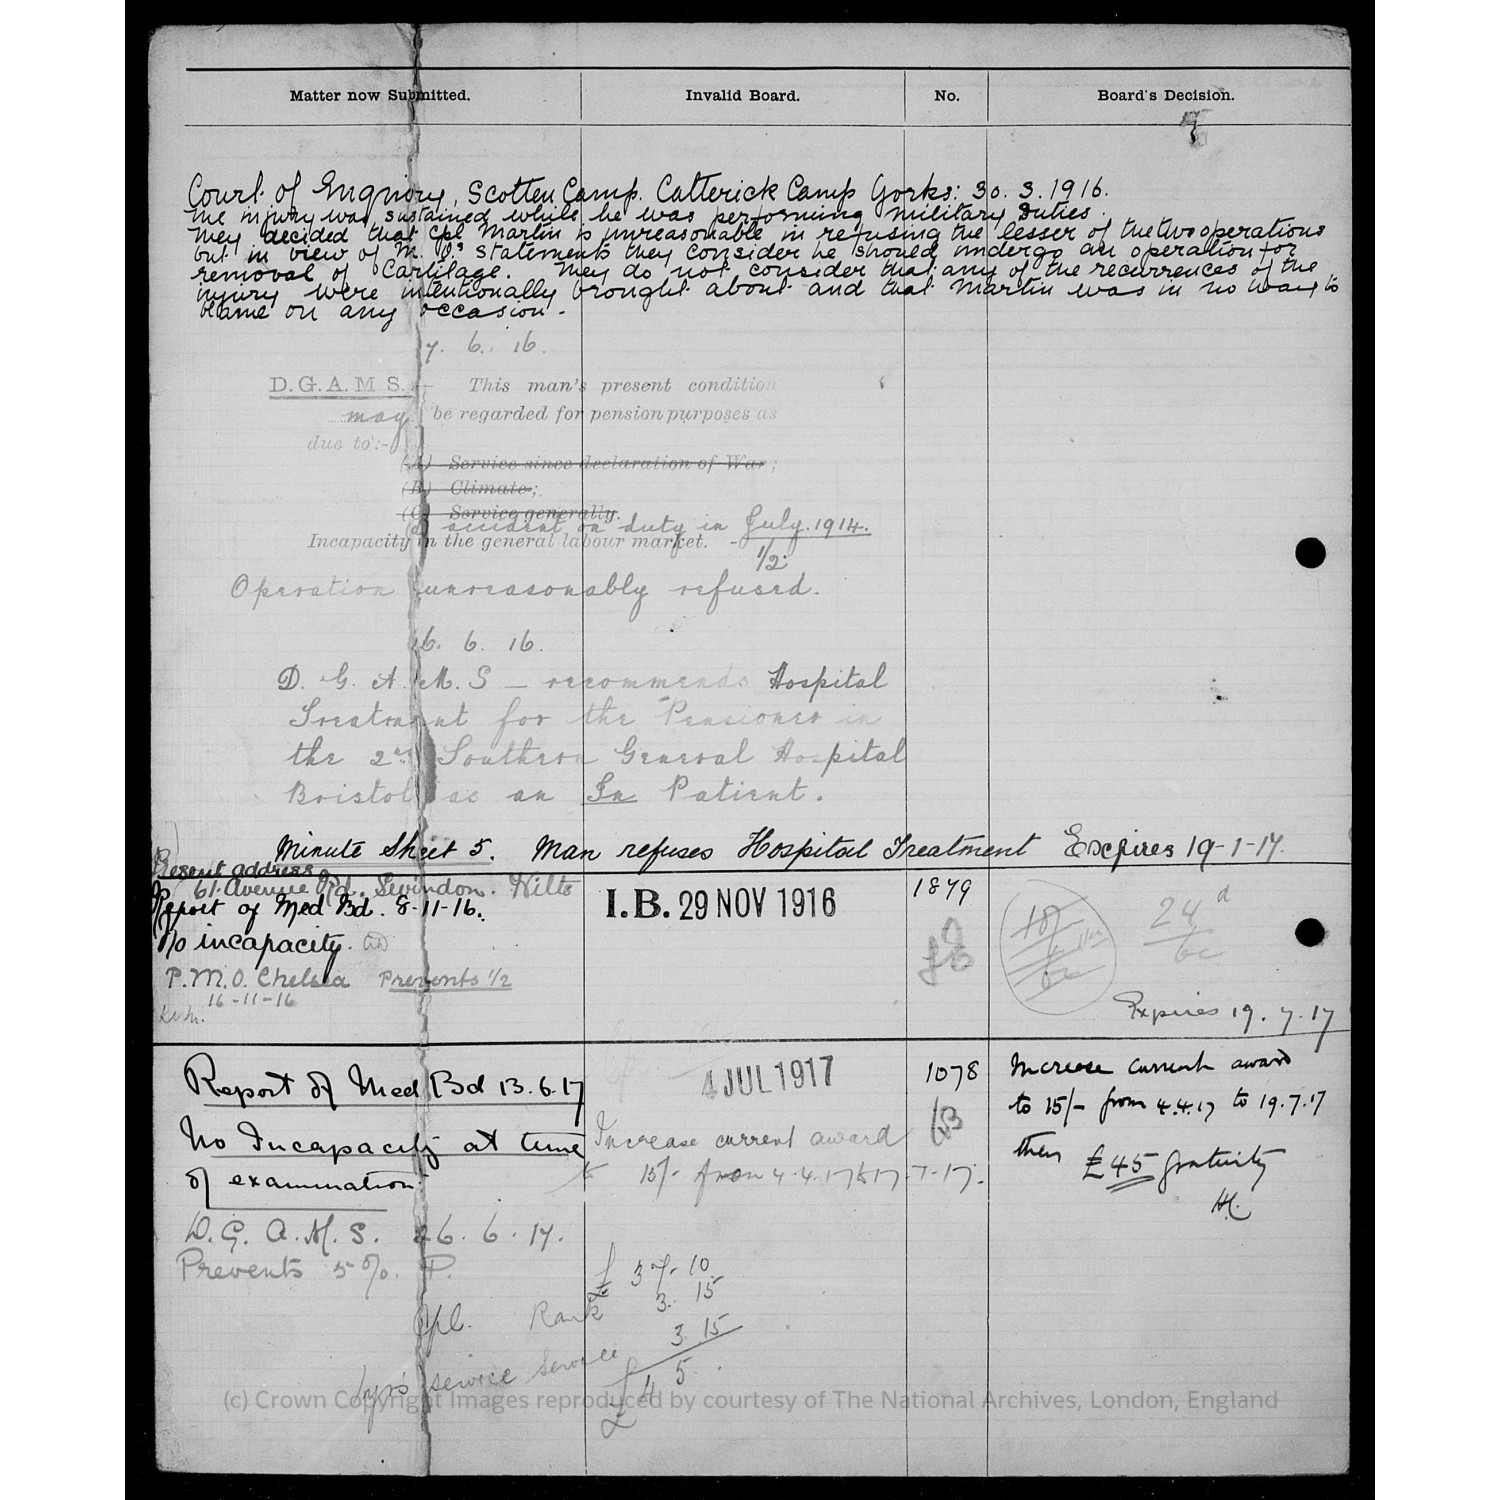 Matter now Submitted. Invalid Board. No. Board's Decision.
Court of Enquiry, Scotten Camp. Catterick Camp Yorks: 30.3.1916.
The injury was sustained while he was performing military duties.
They decided that Cpl Martin is unreasonable in refusing the lesser of the two operations
but in view of M.O's statements they consider he should undergo an operation for
removal of Cartilage. They do not consider that any of the recurrences of the
injury were intentionally brought about and that Martin was in no way to
blame on any occasion.
7. 6. 16.
D.G.A.M S. This man's present condition
may be regarded for pension purposes as
due to:-
(A) Service since declaration of War;
(B) Climate;
(C) Service generally.
(d) accident on duty in July. 1914.
Incapacity in the general labour market. - 1/2
Operation unreasonably refused.
16. 6. 16.
D. G. A. M. S — recommends Hospital
Treatment for the Pensioner in
the 2nd Southern General Hospital
Bristol as an In Patient.
Minute Sheet 5. Man refuses Hospital Treatment Expires 19-1-17.
Present address
61. Avenue Rd. Swindon. Wilts
Report of Med Bd. 8-11-16.
No incapacity.
P.M.O. Chelsea Prevents 1/2
16-11-16
I.B. 29 NOV 1916
1879
24 d
6c
Expires 19. 7. 17
Report of Med Bd 13.6.17
No Incapacity at time
of examination
D. G. A. M. S. 26. 6. 17.
Prevents 5%. P.
4 JUL 1917
Increase current award
to 15/- from 4.4.17 to 17.7.17.
£ 37-10
Cpl. Rank 3. 15
service Service 3 15
£ 45
1078
Increase current award
to 15/- from 4.4.17 to 19.7.17
then £45 gratuity
(c) Crown Copyright Images reproduced by courtesy of The National Archives, London, England